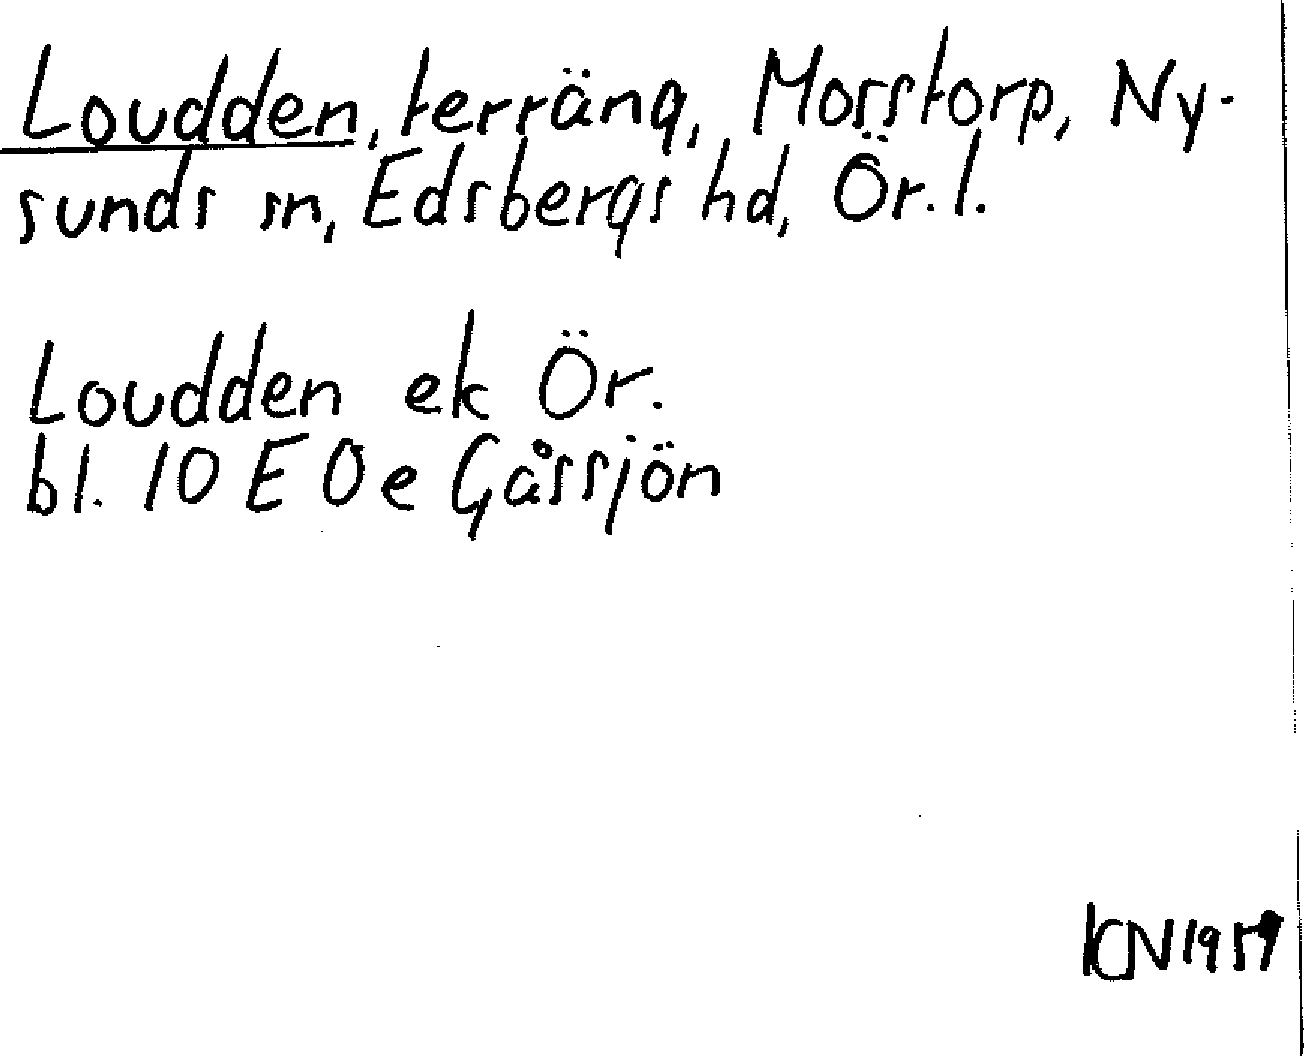 Loudden, terräng, Morstorp, Ny-
sunds sn, Edsbergs hd, Ör. l.
Loudden ek Ör.
bl. 10 E 0e Gåssjön